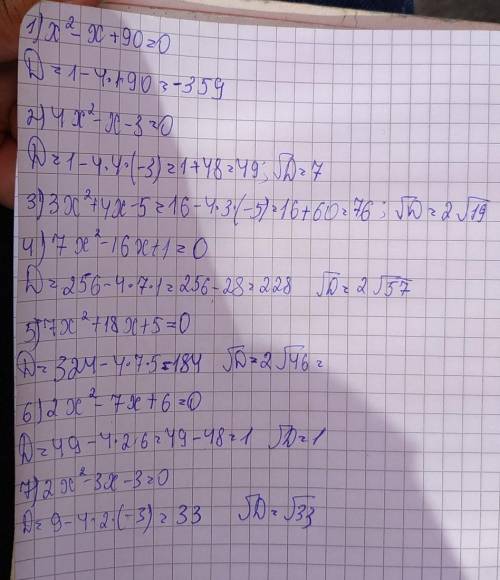 1) x² - x + 90 = 0
D = 1 - 4·1·90 = -359
2) 4x² - x - 3 = 0
D = 1 - 4·4·(-3) = 1 + 48 = 49; √D = 7
3) 3x² + 4x - 5 = 16 - 4·3·(-5) = 16 + 60 = 76; √D = 2√19
4) 7x² - 16x + 1 = 0
D = 256 - 4·7·1 = 256 - 28 = 228 √D = 2√57
5) 7x² + 18x + 5 = 0
D = 324 - 4·7·5 = 184 √D = 2√46 =
6) 2x² - 7x + 6 = 0
D = 49 - 4·2·6 = 49 - 48 = 1 √D = 1
7) 2x² - 3x - 3 = 0
D = 9 - 4·2·(-3) = 33 √D = √33